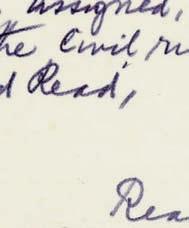 assigned,
the Civil
Read,
Rea